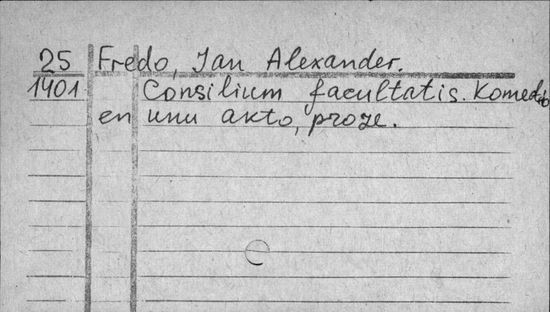 25 Fredo, Jan Alexander.
1401 Consilium facultatis. Komedio
en unu akto, proze.